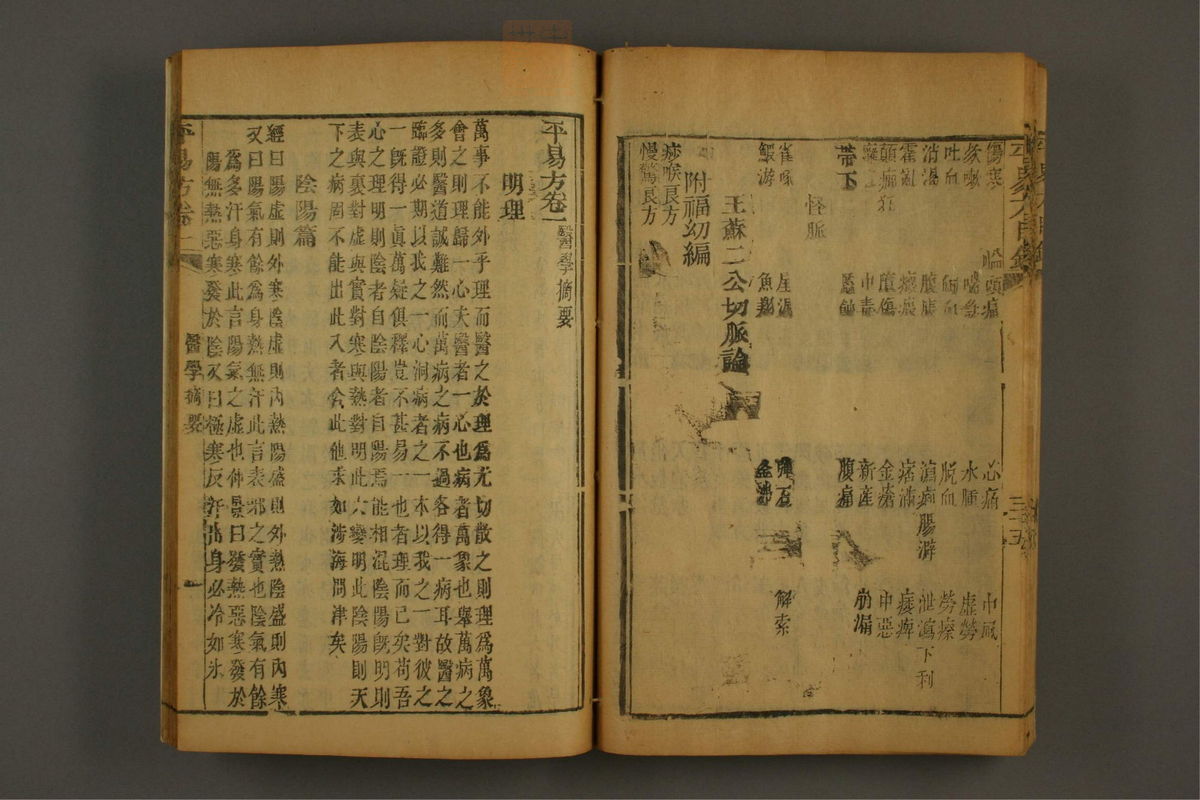 傷寒 頭痛 心痛 中風
咳嗽 喘急 水腫 虛勞
吐血 衂血 脫血 勞瘵
消渴 腹脹 滯與腸澼 泄瀉下利
霍亂 痞滿 痿痺
顛癇狂 金瘡 中惡
中毒 新產
帶下 腹痛 崩漏
怪脈
雀啄 屋漏 彈石 解索
蝦游 魚翔 釜沸
王蘇二公切脈論
附福幼編
痧喉良方
慢驚良方
平易方目錄
三十五
平易方卷一 醫學摘要
明理
萬事不能外乎理而醫之於理爲尤切散之則理爲萬象
會之則理歸一心夫醫者一心也病者萬象也舉萬病之
多則醫道誠難然而萬病之病不過各得一病耳故醫之
臨證必期以我之一心洞病者之一本以我之一對彼之
一旣得一眞萬疑俱釋豈不甚易一也者理而已矣苟吾
心之理明則陰者自陰陽者自陽焉能相混陰陽旣明則
表與裏對虛與實對寒與熱對明此六變明此陰陽則天
下之病固不能出此入者舍此他求如涉海問津矣
陰陽篇
經曰陽虛則外寒陰虛則內熱陽盛則外熱陰盛則內寒
又曰陽氣有餘爲身熱無汗此言表邪之實也陰氣有餘
爲多汗身寒此言陽氣之虛也仲景曰發熱惡寒發於
陽無熱惡寒發於陰又曰極寒反汗出身必冷如氷
平易方卷一
醫學摘要
一